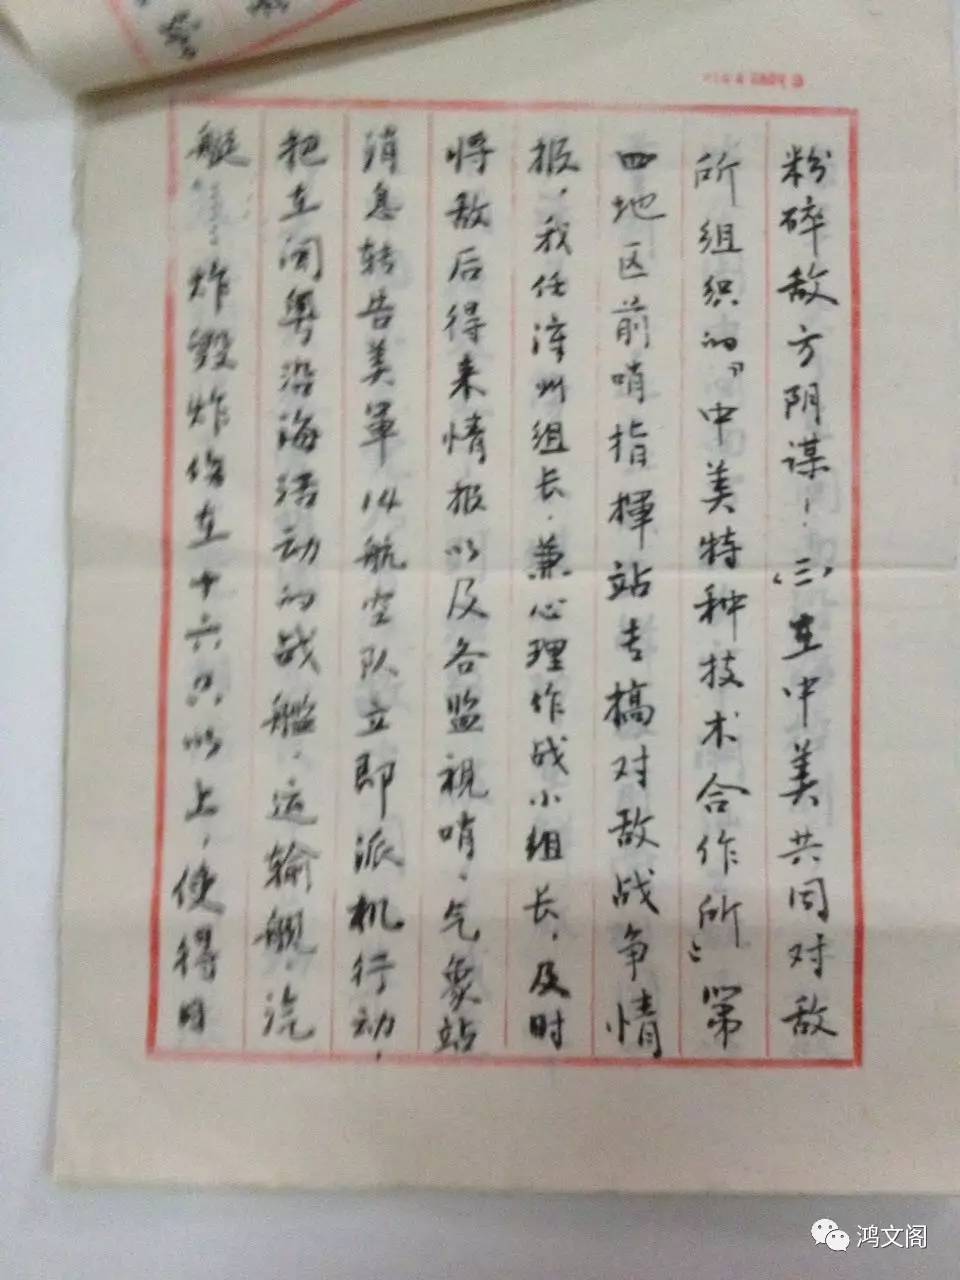 粉碎敌方阴谋！（三）在中美共同对敌
所组织的“中美特种技术合作所”第
四地区前哨指挥站专搞对敌战争情
报，我任漳州组长、兼心理作战小组长，及时
将敌后得来情报以及各监视哨、气象站
消息转告美军14航空队立即派机行动，
把在闽粤沿海活动的战舰、运输舰、汽
艇 炸毁炸伤在十六只以上，使得日
鸿文阁